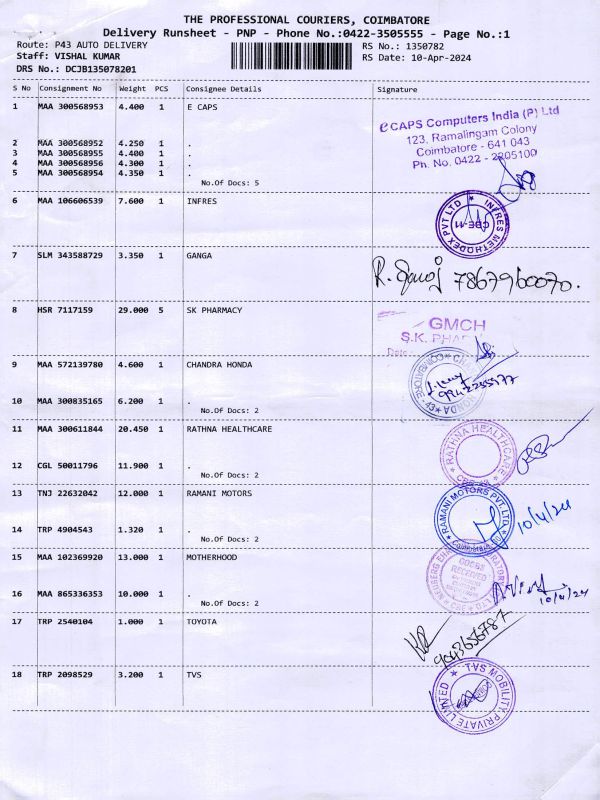 THE PROFESSIONAL COURIERS, COIMBATORE
Delivery Runsheet - PNP - Phone No.:0422-3505555 - Page No.:1
Route: P43 AUTO DELIVERY RS No.: 1350782
Staff: VISHAL KUMAR RS Date: 10-Apr-2024
DRS No.: DCJB135078201
S No Consignment No Weight PCS Consignee Details Signature
1 MAA 300568953 4.400 1 E CAPS
eCAPS Computers India (P) Ltd
123, Ramalingam Colony
Coimbatore - 641 043
Ph. No. 0422 - 2205100
2 MAA 300568952 4.250 1 .
3 MAA 300568955 4.400 1 .
4 MAA 300568956 4.300 1 .
5 MAA 300568954 4.350 1 .
No.Of Docs: 5
6 MAA 106606539 7.600 1 INFRES
INFRES METHODEX PVT LTD
CBE-11
7 SLM 343588729 3.350 1 GANGA
7867960070.
8 HSR 7117159 29.000 5 SK PHARMACY
GMCH
S.K. PHAR
Date
9 MAA 572139780 4.600 1 CHANDRA HONDA
10 MAA 300835165 6.200 1 .
No.Of Docs: 2
11 MAA 300611844 20.450 1 RATHNA HEALTHCARE
RATHNA HEALTHCARE
12 CGL 50011796 11.900 1 .
No.Of Docs: 2
13 TNJ 22632042 12.000 1 RAMANI MOTORS
RAMANI MOTORS PVT. LTD.
Coimbatore
10/4/24
14 TRP 4904543 1.320 1 .
No.Of Docs: 2
15 MAA 102369920 13.000 1 MOTHERHOOD
GOODS
RECEIVED
16 MAA 865336353 10.000 1 .
10/4/24
No.Of Docs: 2
17 TRP 2540104 1.000 1 TOYOTA
9043656787
18 TRP 2098529 3.200 1 TVS
TVS MOBILITY PRIVATE LIMITED